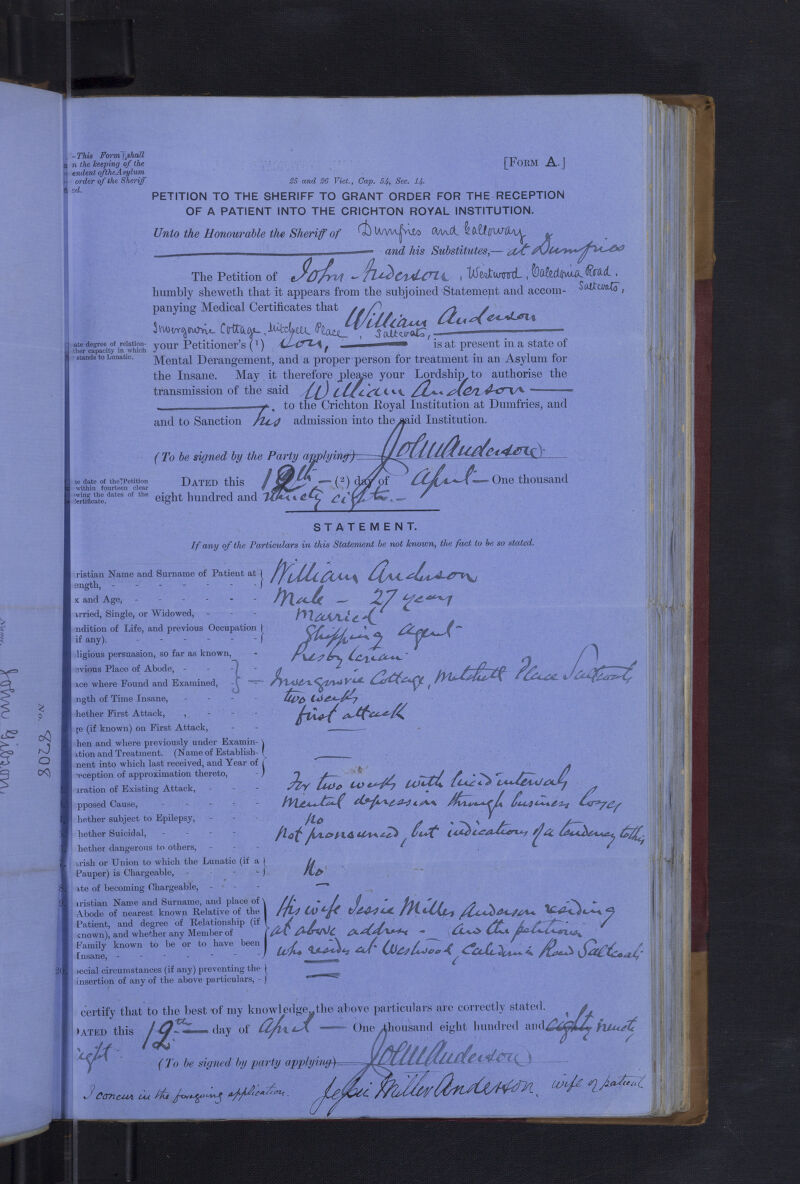 -This Form shall
n the keeping of the
endent of the Asylum
order of the Sheriff
ed.
[FORM A.]
25 and 26 Vict., Cap. 54, Sec. 14.
PETITION TO THE SHERIFF TO GRANT ORDER FOR THE RECEPTION
OF A PATIENT INTO THE CRICHTON ROYAL INSTITUTION.
Unto the Honourable the Sheriff of Dumfries and Galloway
and his Substitutes,— at Dumfries
The Petition of John Anderson, Westwood, Caledonia Road,
Saltcoats,
humbly sheweth that it appears from the subjoined Statement and accom-
panying Medical Certificates that William Anderson
Invergowrie Cottage, Mitchell Place, Saltcoats,
ate degree of relation-
ther capacity in which
stands to Lunatic.
your Petitioner's (1) Son, is at present in a state of
Mental Derangement, and a proper person for treatment in an Asylum for
the Insane. May it therefore please your Lordship to authorise the
transmission of the said William Anderson —
, to the Crichton Royal Institution at Dumfries, and
and to Sanction his admission into the said Institution.
(To be signed by the Party applying) John Anderson
e date of the Petition
within fourteen clear
wing the dates of the
Certificate.
DATED this 12th — (2) day of April — One thousand
eight hundred and ninety eight. —
STATEMENT.
If any of the Particulars in this Statement be not known, the fact to be so stated.
ristian Name and Surname of Patient at
ength, - William Anderson
x and Age, - Male - 27 years
rried, Single, or Widowed, - Married
ndition of Life, and previous Occupation
if any). - Shipping Agent
ligious persuasion, so far as known, - Presbyterian
evious Place of Abode, -
ace where Found and Examined, - Invergowrie Cottage, Mitchell Place Saltcoats
ngth of Time Insane, - two weeks
hether First Attack, - first attack
ge (if known) on First Attack, - —
hen and where previously under Examin-
ation and Treatment. (Name of Establish-
ment into which last received, and Year of
reception of approximation thereto, —
uration of Existing Attack, - For two weeks with lucid intervals
pposed Cause, - Mental depression through business losses
hether subject to Epilepsy, - No
hether Suicidal, - Not pronounced, but indications of a tendency to this
hether dangerous to others, -
arish or Union to which the Lunatic (if a
Pauper) is Chargeable, - No
ate of becoming Chargeable, - —
ristian Name and Surname, and place of
Abode of nearest known Relative of the
Patient, and degree of Relationship (if
known), and whether any Member of
Family known to be or to have been
Insane, -
His wife Jessie Miller Anderson residing
at above address - and the petitioner
who resides at Westwood, Caledonia Road Saltcoats
pecial circumstances (if any) preventing the
insertion of any of the above particulars, -
certify that to the best of my knowledge, the above particulars are correctly stated.
DATED this 12th — day of April — One thousand eight hundred and eighty ninety
eight
(To be signed by party applying) John Anderson
I concur in the foregoing application. Jessie Miller Anderson, wife of patient
No. 8208
John Gibson